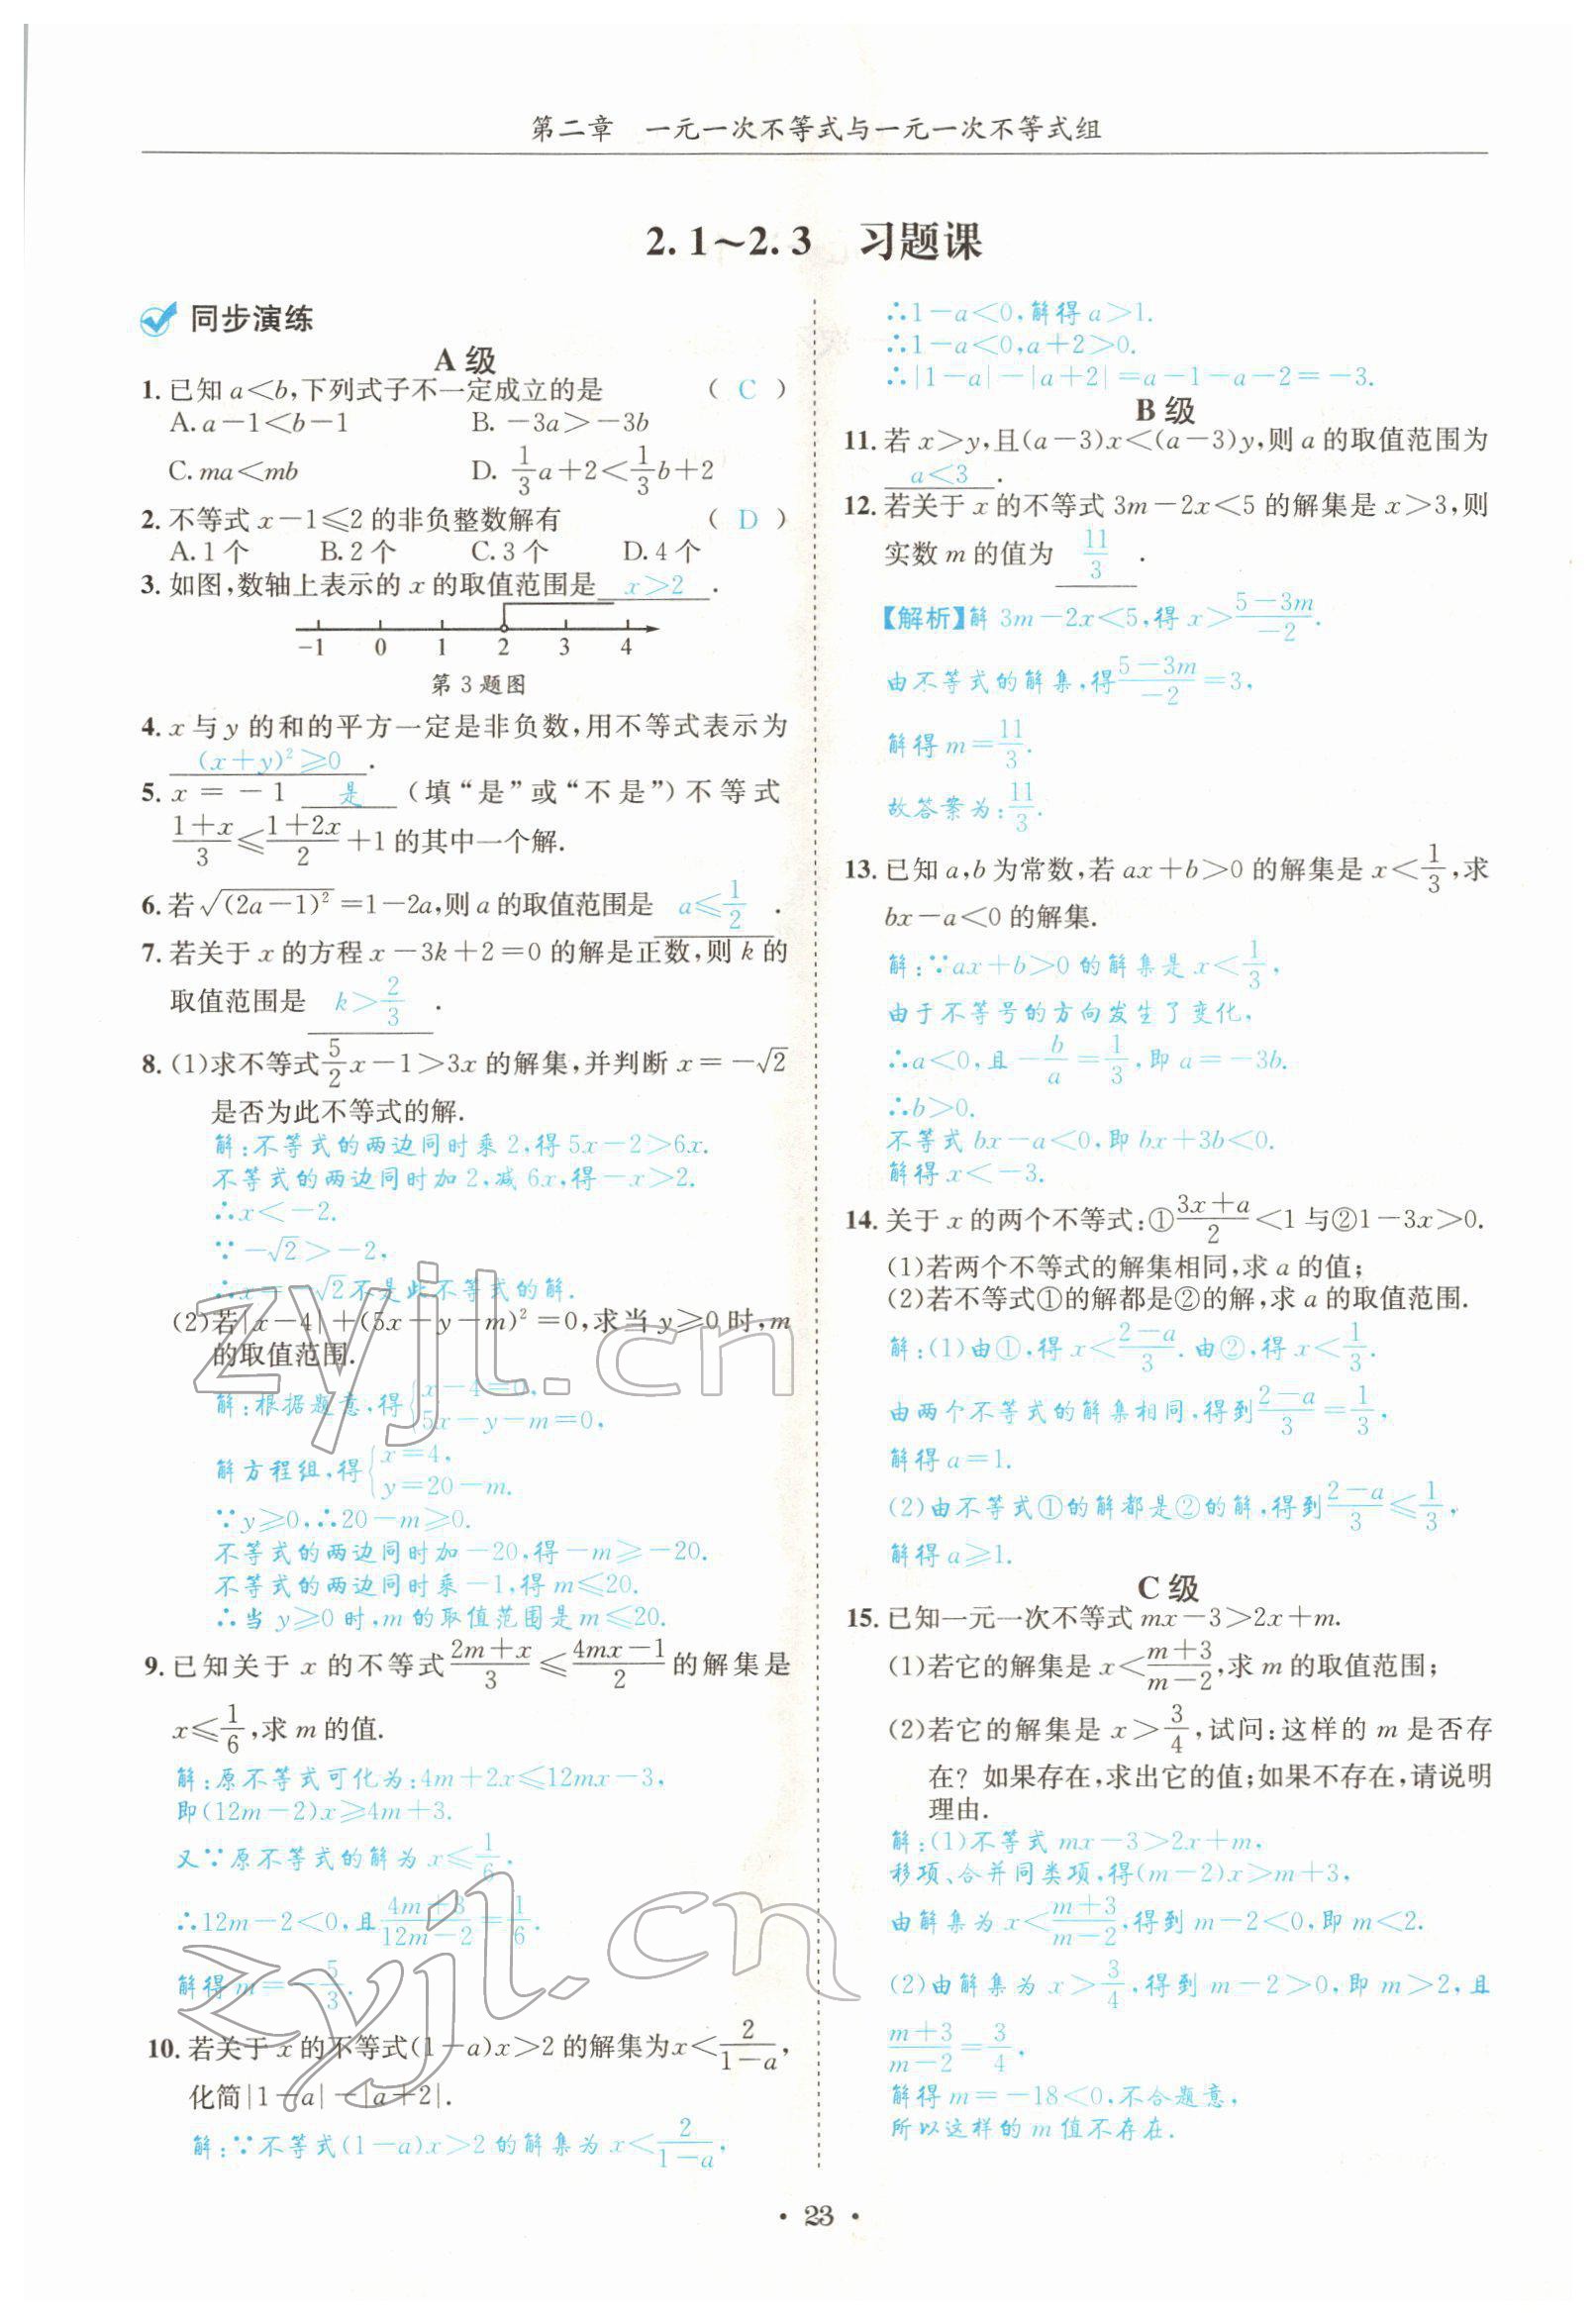 第二章 一元一次不等式与一元一次不等式组
2.1~2.3 习题课
同步演练
A级
1.已知a<b,下列式子不一定成立的是 ( C )
A.a-1<b-1 B.-3a>-3b
C.ma<mb D.1/3a+2<1/3b+2
2.不等式x-1≤2的非负整数解有 ( D )
A.1个 B.2个 C.3个 D.4个
3.如图,数轴上表示的x的取值范围是 x>2 .
-1 0 1 2 3 4
第3题图
4.x与y的和的平方一定是非负数,用不等式表示为
(x+y)²≥0 .
5.x=-1 是 (填“是”或“不是”)不等式
(1+x)/3≤(1+2x)/2+1的其中一个解.
6.若√(2a-1)²=1-2a,则a的取值范围是 a≤1/2 .
7.若关于x的方程x-3k+2=0的解是正数,则k的
取值范围是 k>2/3 .
8.(1)求不等式5/2x-1>3x的解集,并判断x=-√2
是否为此不等式的解.
解:不等式的两边同时乘2,得5x-2>6x.
不等式的两边同时加2,减6x,得-x>2.
∴x<-2.
∵-√2>-2,
∴x=-√2不是此不等式的解.
(2)若|x-4|+(5x-y-m)²=0,求当y≥0时,m
的取值范围.
解:根据题意,得{x-4=0,
5x-y-m=0,
解方程组,得{x=4,
y=20-m.
∵y≥0,∴20-m≥0.
不等式的两边同时加-20,得-m≥-20.
不等式的两边同时乘-1,得m≤20.
∴当y≥0时,m的取值范围是m≤20.
9.已知关于x的不等式(2m+x)/3≤(4mx-1)/2的解集是
x≤1/6,求m的值.
解:原不等式可化为:4m+2x≤12mx-3,
即(12m-2)x≥4m+3.
又∵原不等式的解为x≤1/6,
∴12m-2<0,且(4m+3)/(12m-2)=1/6.
解得m=-5/3.
10.若关于x的不等式(1-a)x>2的解集为x<2/(1-a),
化简|1-a|-|a+2|.
解:∵不等式(1-a)x>2的解集为x<2/(1-a),
∴1-a<0,解得a>1.
∴1-a<0,a+2>0.
∴|1-a|-|a+2|=a-1-a-2=-3.
B级
11.若x>y,且(a-3)x<(a-3)y,则a的取值范围为
a<3 .
12.若关于x的不等式3m-2x<5的解集是x>3,则
实数m的值为 11/3 .
【解析】解3m-2x<5,得x>(5-3m)/-2.
由不等式的解集,得(5-3m)/-2=3,
解得m=11/3.
故答案为:11/3.
13.已知a,b为常数,若ax+b>0的解集是x<1/3,求
bx-a<0的解集.
解:∵ax+b>0的解集是x<1/3,
由于不等号的方向发生了变化,
∴a<0,且-b/a=1/3,即a=-3b.
∴b>0.
不等式bx-a<0,即bx+3b<0.
解得x<-3.
14.关于x的两个不等式:①(3x+a)/2<1与②1-3x>0.
(1)若两个不等式的解集相同,求a的值;
(2)若不等式①的解都是②的解,求a的取值范围.
解:(1)由①,得x<(2-a)/3.由②,得x<1/3.
由两个不等式的解集相同,得到(2-a)/3=1/3,
解得a=1.
(2)由不等式①的解都是②的解,得到(2-a)/3≤1/3,
解得a≥1.
C级
15.已知一元一次不等式mx-3>2x+m.
(1)若它的解集是x<(m+3)/(m-2),求m的取值范围;
(2)若它的解集是x>3/4,试问:这样的m是否存
在?如果存在,求出它的值;如果不存在,请说明
理由.
解:(1)不等式mx-3>2x+m,
移项、合并同类项,得(m-2)x>m+3,
由解集为x<(m+3)/(m-2),得到m-2<0,即m<2.
(2)由解集为x>3/4,得到m-2>0,即m>2,且
(m+3)/(m-2)=3/4,
解得m=-18<0,不合题意,
所以这样的m值不存在.
zyjl.cn
zyjl.cn
· 23 ·